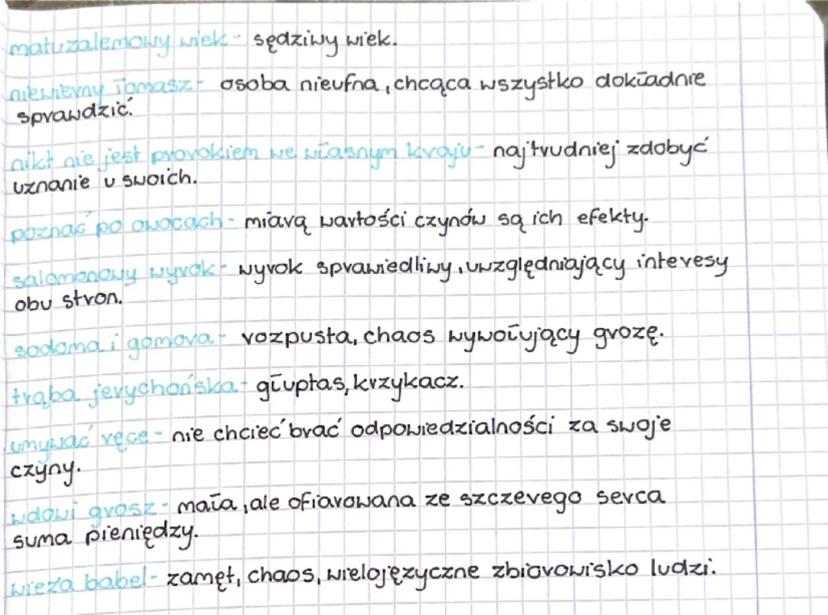 matuzalemowy wiek - sędziwy wiek.
niewierny Tomasz - osoba nieufna, chcąca wszystko dokładnie
sprawdzić.
nikt nie jest prorokiem we własnym kraju - najtrudniej zdobyć
uznanie u swoich.
poznać po owocach - miarą wartości czynów są ich efekty.
salomonowy wyrok - wyrok sprawiedliwy, uwzględniający interesy
obu stron.
sodoma i gomora - rozpusta, chaos wywołujący grozę.
trąba jerychońska - głuptas, krzykacz.
umywać ręce - nie chcieć brać odpowiedzialności za swoje
czyny.
wdowi grosz - mała, ale ofiarowana ze szczerego serca
suma pieniędzy.
wieża babel - zamęt, chaos, wielojęzyczne zbiorowisko ludzi.